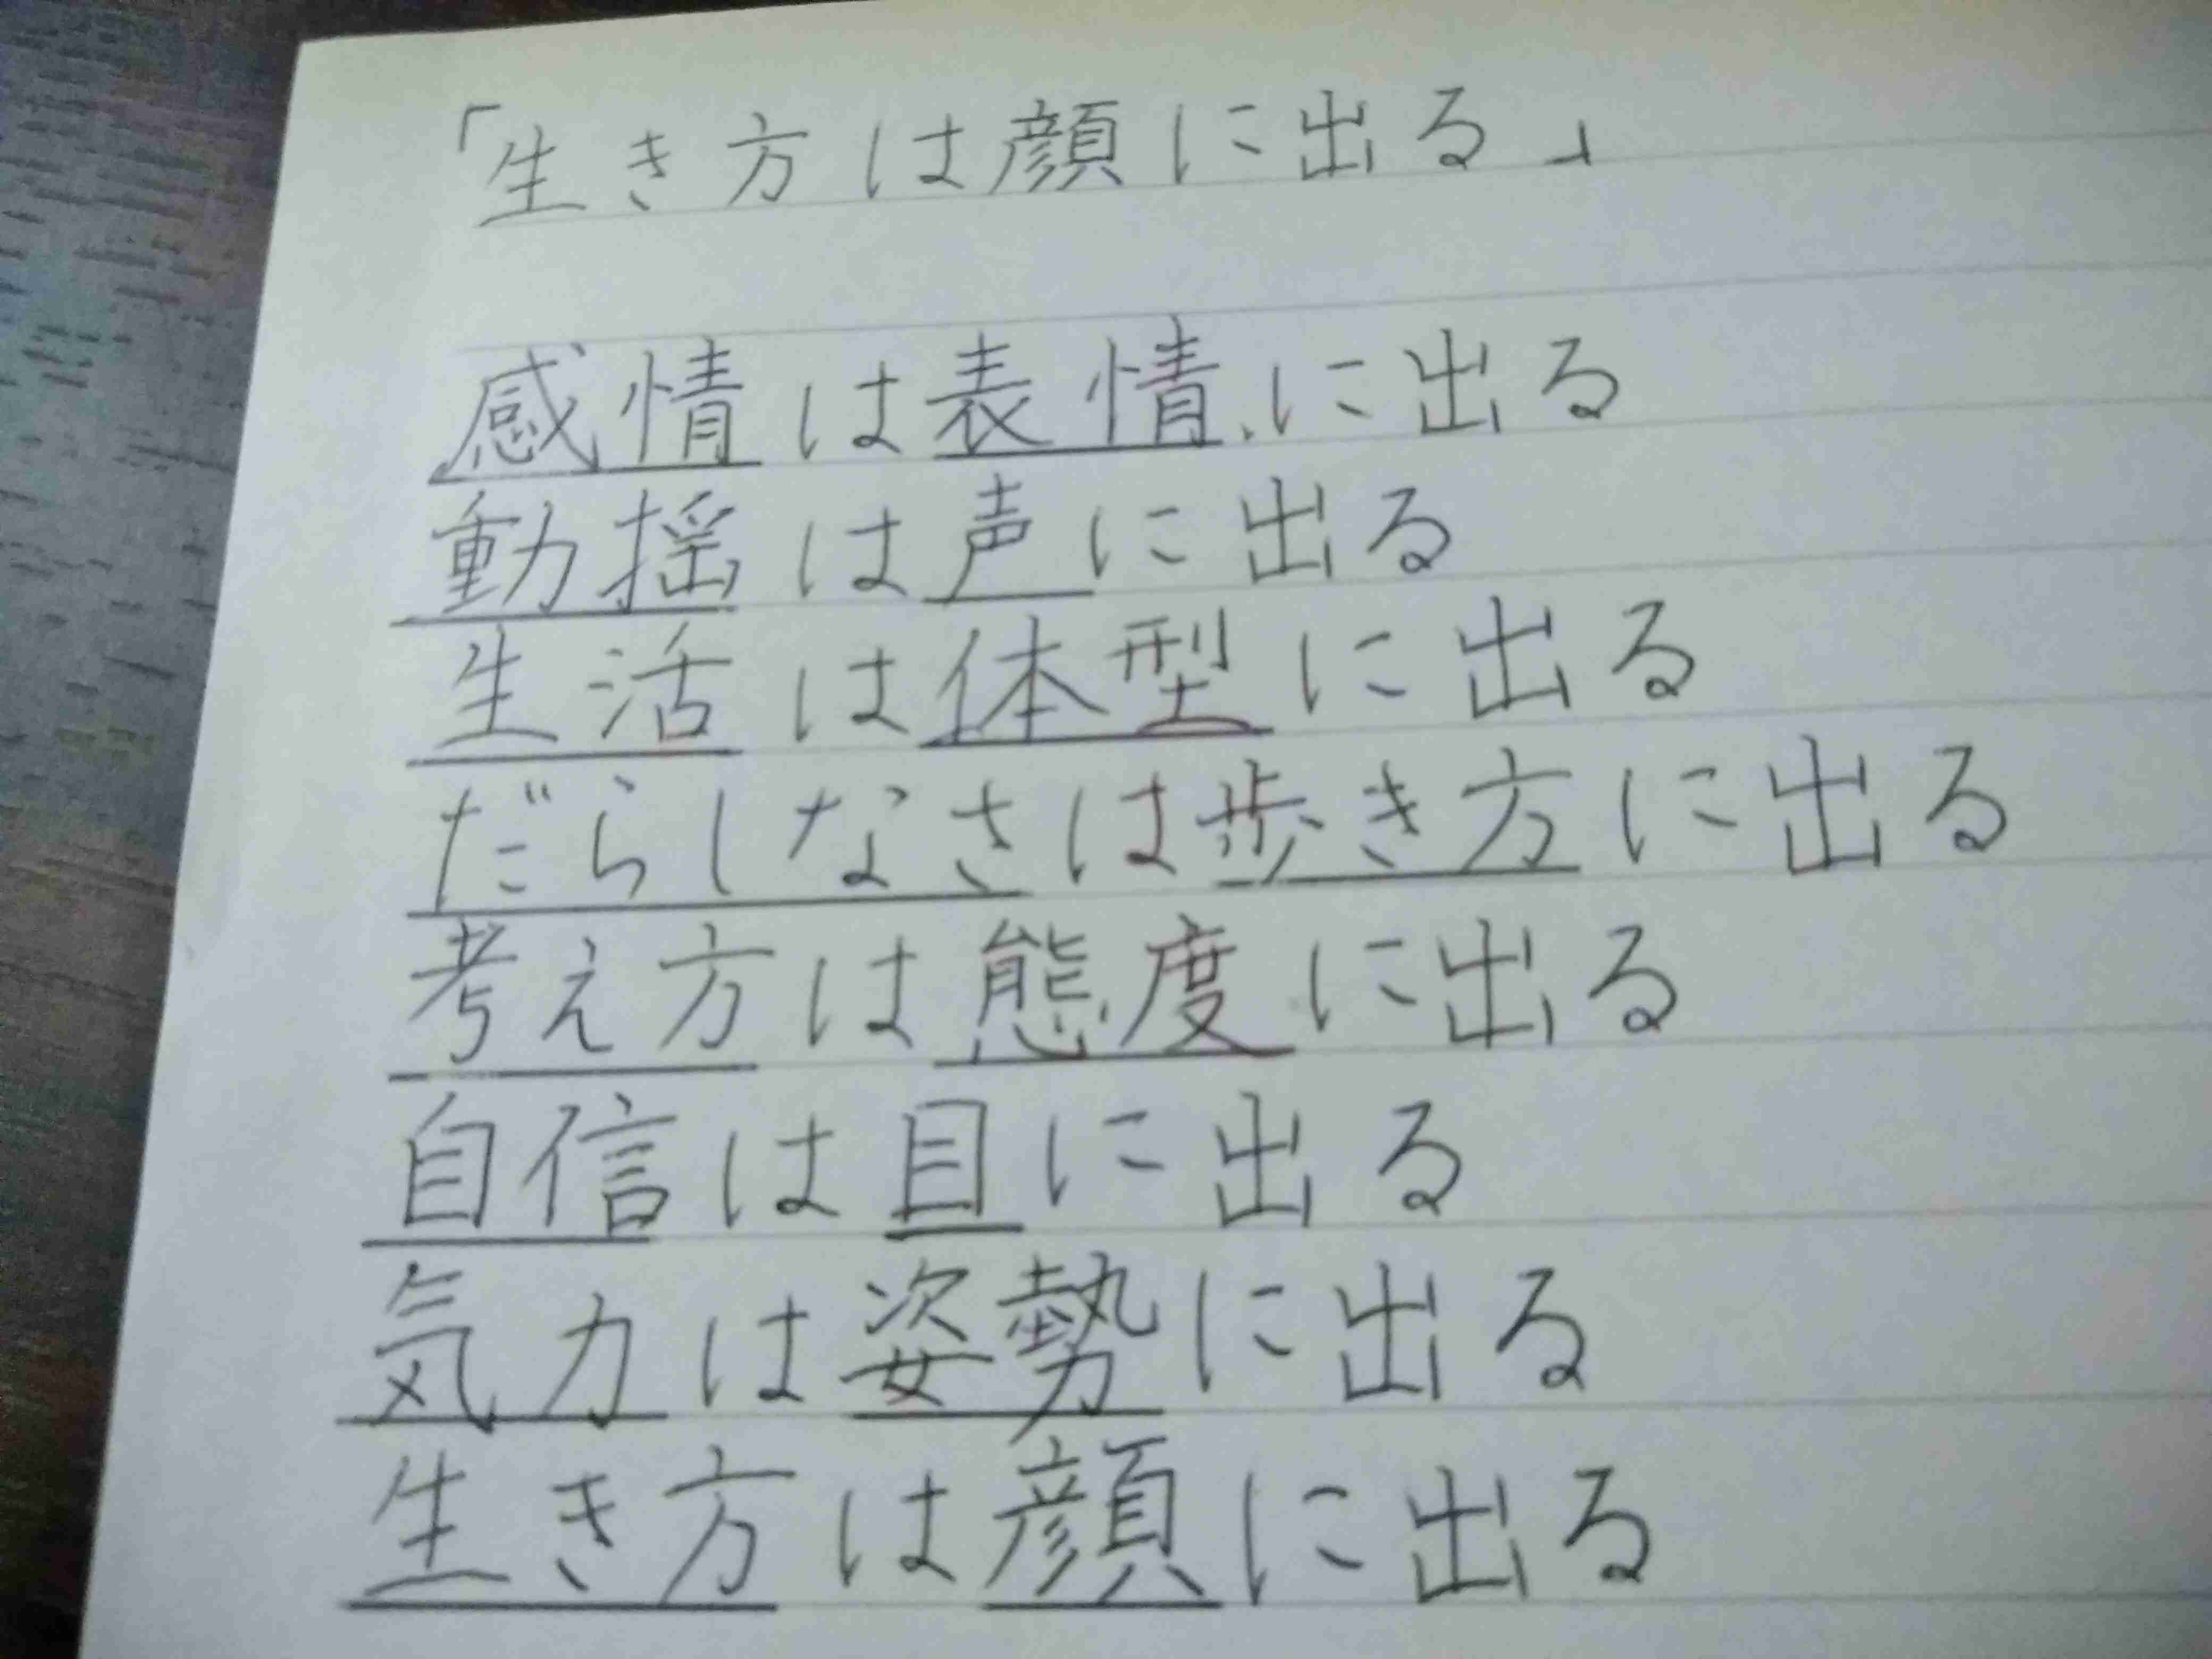 「生き方は顔に出る」
感情は表情に出る
動揺は声に出る
生活は体型に出る
だらしなさは歩き方に出る
考え方は態度に出る
自信は目に出る
気力は姿勢に出る
生き方は顔に出る